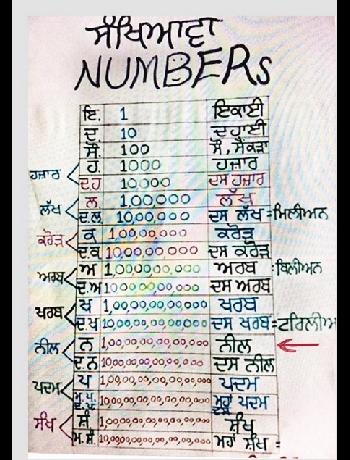 ਸੰਖਿਆਵਾਂ
NUMBERS
ਇ. 1 ਇਕਾਈ
ਦ 10 ਦਹਾਈ
ਸੈਂ. 100 ਸੈਂ, ਸੈਂਕੜਾ
ਹ 1000 ਹਜ਼ਾਰ
ਹਜ਼ਾਰ
ਦਹ 10,000 ਦਸ ਹਜ਼ਾਰ
ਲ 1,00,000 ਲੱਖ
ਲੱਖ
ਦ.ਲ. 10,00,000 ਦਸ ਲੱਖ =ਮਿਲੀਅਨ
ਕ 1,00,00,000 ਕਰੋੜ
ਕਰੋੜ
ਦ.ਕ 10,00,00,000 ਦਸ ਕਰੋੜ
ਅ 1,00,00,00,000 ਅਰਬ =ਬਿਲੀਅਨ
ਅਰਬ
ਦ.ਅ 10,00,00,00,000 ਦਸ ਅਰਬ
ਖ 1,00,00,00,00,000 ਖਰਬ
ਖਰਬ
ਦ.ਖ 10,00,00,00,00,000 ਦਸ ਖਰਬ =ਟਰਿਲੀਅ
ਨ 1,00,00,00,00,00,000 ਨੀਲ
ਨੀਲ
ਦ ਨ 10,00,00,00,00,00,000 ਦਸ ਨੀਲ
ਪ 1,00,00,00,00,00,00,000 ਪਦਮ
ਪਦਮ
ਮ.ਪ. 10,00,00,00,00,00,00,000 ਮਹਾਂ ਪਦਮ
ਸੰ 1,00,00,00,00,00,00,00,000 ਸ਼ੰਖ
ਸੰਖ
ਮ.ਸੰ 10,00,00,00,00,00,00,00,000 ਮਹਾਂ ਸ਼ੰਖ =